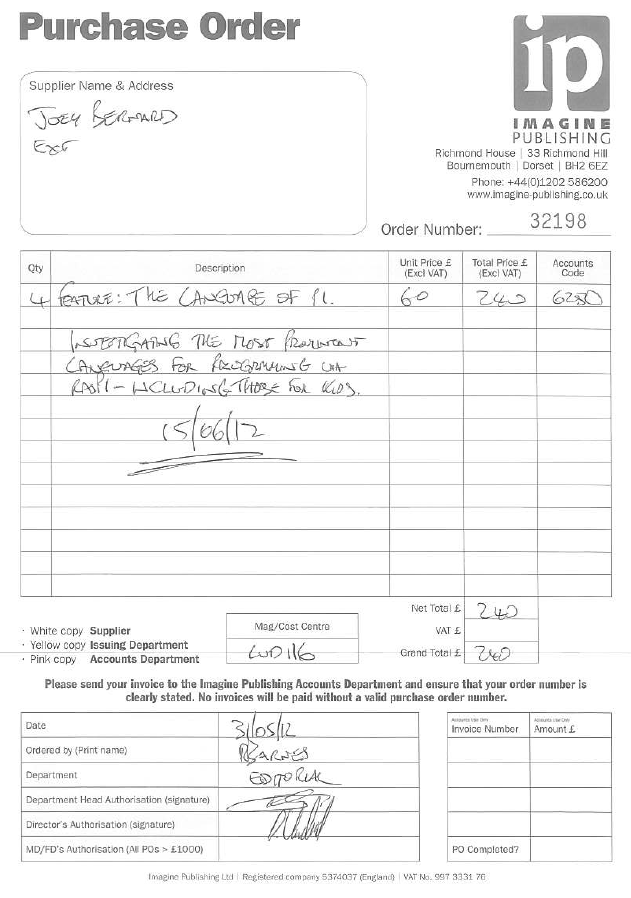 Purchase Order
ip
IMAGINE
PUBLISHING
Richmond House | 33 Richmond Hill
Bournemouth | Dorset | BH2 6EZ
Phone: +44(0)1202 586200
www.imagine-publishing.co.uk
Supplier Name & Address
JOEY BERNARD
EXT
Order Number: 32198
Qty Description Unit Price £ (Excl VAT) Total Price £ (Excl VAT) Accounts Code
4 FEATURE: THE LANGUAGE OF PI. 60 240 6280
INVESTIGATING THE MOST PROMINENT
LANGUAGES FOR PROGRAMMING VIA
RASPI - INCLUDING THOSE FOR KIDS.
15/06/12
Net Total £ 240
VAT £
Grand Total £ 240
· White copy Supplier
· Yellow copy Issuing Department
· Pink copy Accounts Department
Mag/Cost Centre
LUD116
Please send your invoice to the Imagine Publishing Accounts Department and ensure that your order number is
clearly stated. No invoices will be paid without a valid purchase order number.
Date 31/05/12
Ordered by (Print name) RBARNES
Department EDITORIAL
Department Head Authorisation (signature)
Director's Authorisation (signature)
MD/FD's Authorisation (All POs > £1000)
Accounts Use Only
Invoice Number
Accounts Use Only
Amount £
PO Completed?
Imagine Publishing Ltd | Registered company 5374037 (England) | VAT No. 997 3331 76